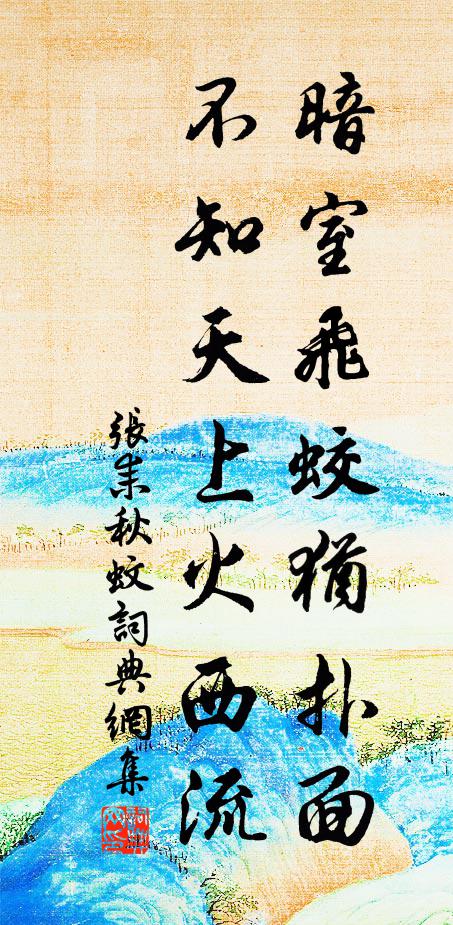 暗室飛蛟猶扑面
不知天上火西流
張耒秋蚊詞典網集